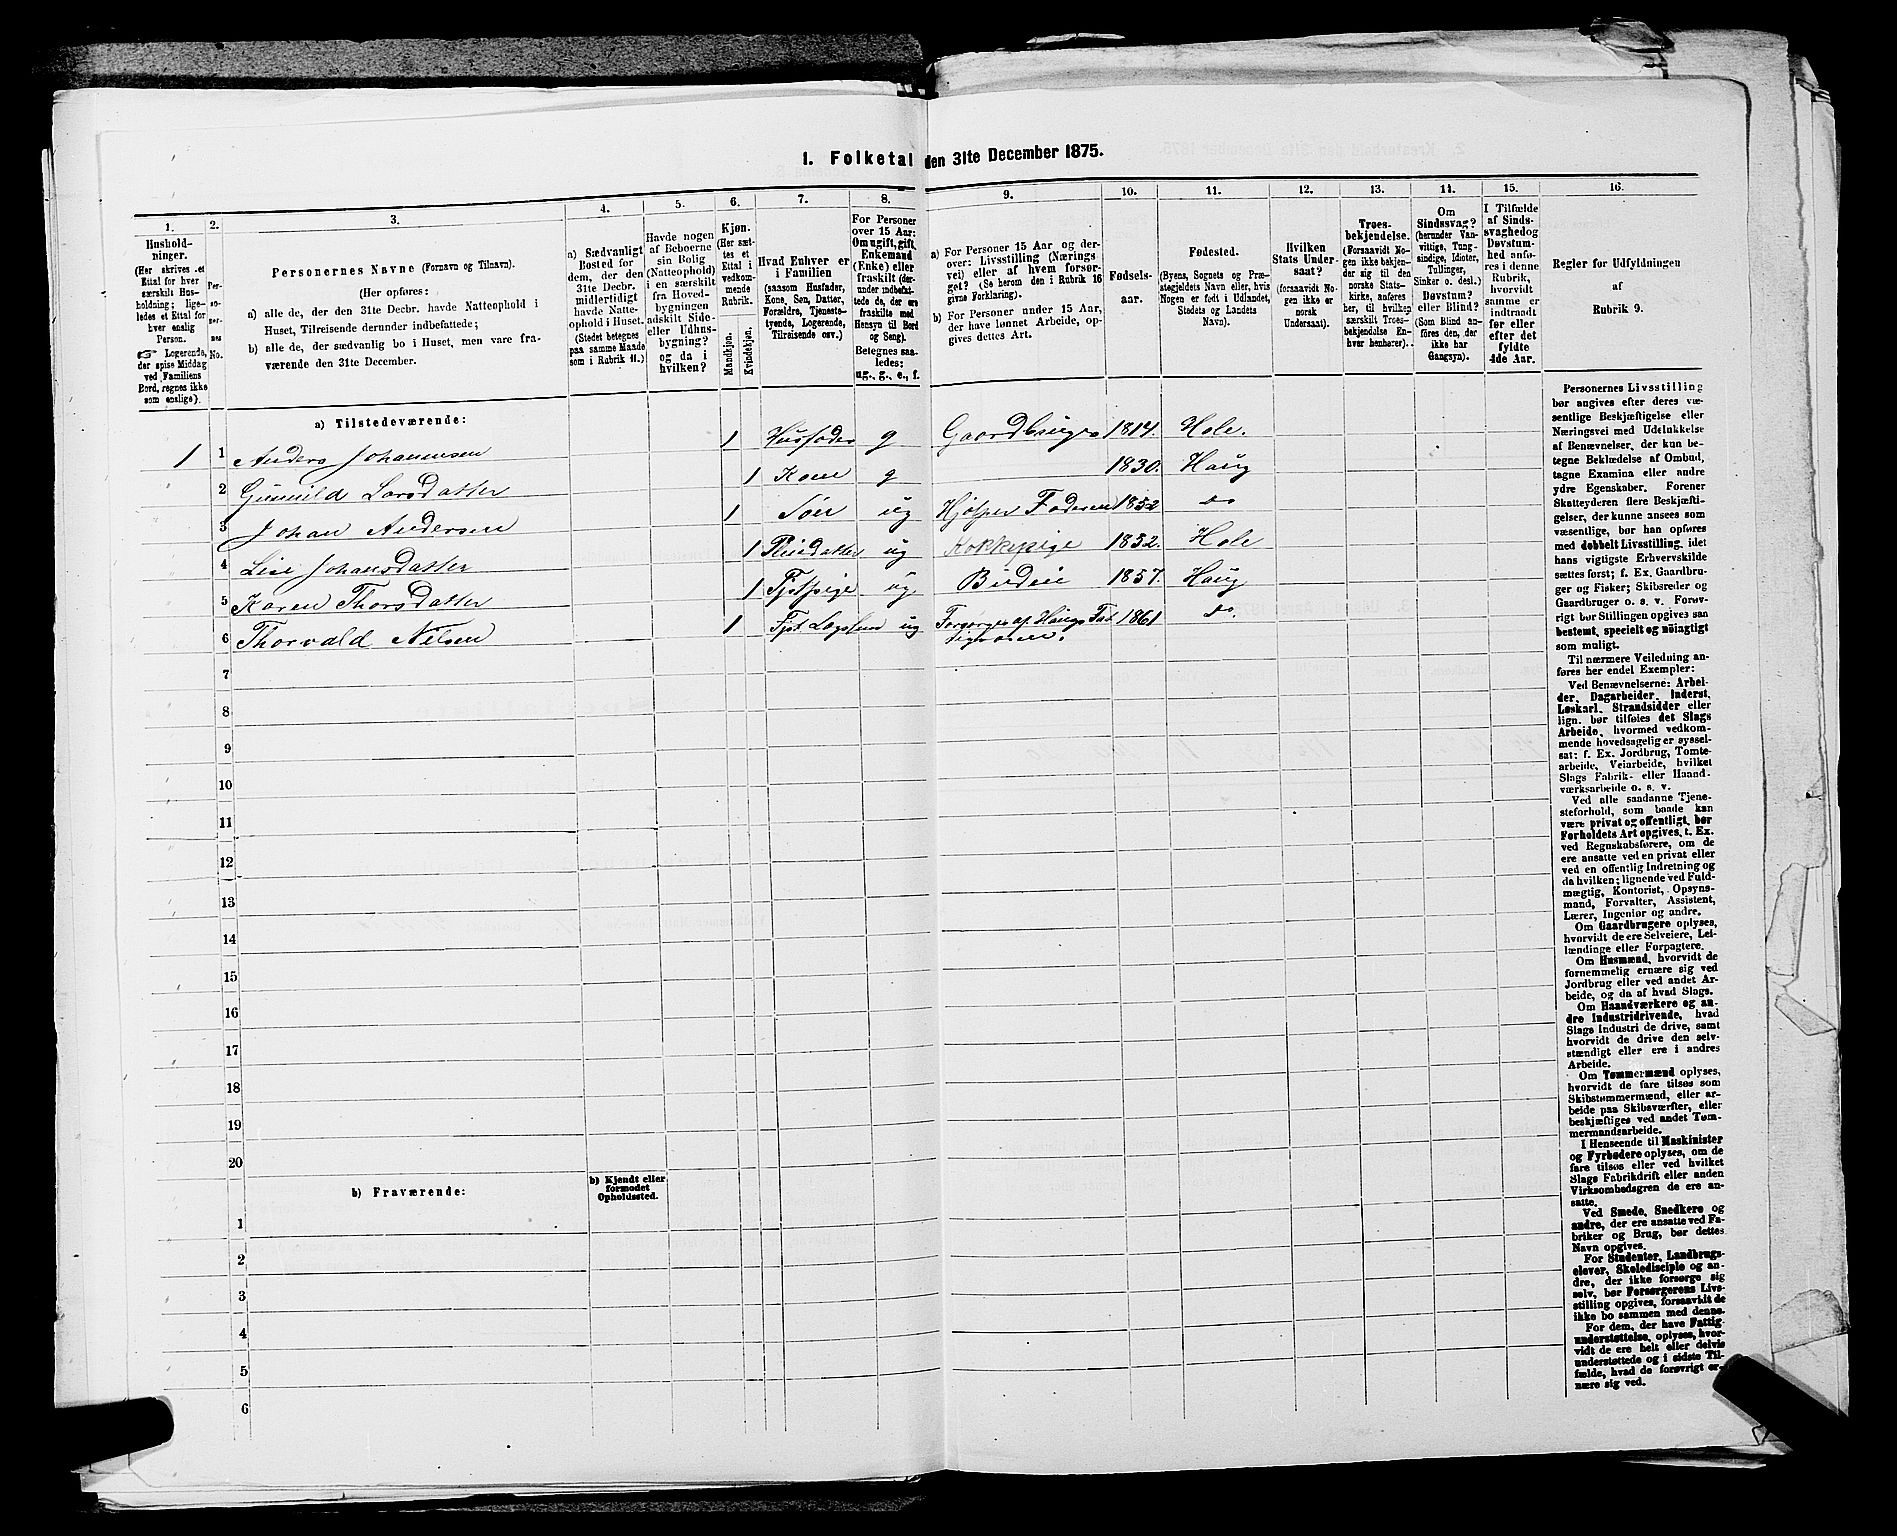 1. Folketal den 31te December 1875.
1. 2. 3. 4. 5. 6. 7. 8. 9. 10. 11. 12. 13. 14. 15. 16.
Hushold-
ninger.
(Her skrives et
Ettal for hver
særskilt Hus-
holdning; lige-
ledes et Ettal for
hver enslig
Person.
☞ Logerende,
der spise Middag
ved Familiens
Bord, regnes ikke
som enslige).
Per-
so-
ner-
nes
No.
Personernes Navne (Fornavn og Tilnavn).
(Her opføres:
a) alle de, der den 31te Decbr. havde Natteophold i
Huset, Tilreisende derunder indbefattede;
b) alle de, der sædvanlig bo i Huset, men vare fra-
værende den 31te December.
a) Sædvanligt
Bosted for
dem, der den
31te Decbr.
midlertidigt
havde Natte-
ophold i Huset.
(Stedet betegnes
paa samme Maade
som i Rubrik 11.)
Havde nogen
af Beboerne
sin Bolig
(Natteophold)
i en særskilt
fra Hoved-
bygningen
adskilt Side-
eller Udhus-
bygning?
og da i
hvilken?
Kjøn.
(Her sæt-
tes et
Ettal i
vedkom-
mende
Rubrik.
Mandkjøn.
Kvindekjøn.
Hvad Enhver er
i Familien
(saasom Husfader,
Kone, Søn, Datter,
Forældre, Tjeneste-
tyende, Logerende,
Tilreisende osv.)
For Personer
over 15 Aar:
Om ugift, gift,
Enkemand
(Enke) eller
fraskilt (der-
under indbefat-
tede de, der ere
fraskilte med
Hensyn til Bord
og Seng).
Betegnes saa-
ledes:
ug., g., e., f.
a) For Personer 15 Aar og der-
over: Livsstilling (Nærings
vei) eller af hvem forsør-
get? (Se herom den i Rubrik 16
givne Forklaring).
b) For Personer under 15 Aar,
der have lønnet Arbeide, op-
gives dettes Art.
Fødsels-
aar.
Fødested.
(Byens, Sognets og Præ-
stegjeldets Navn eller, hvis
Nogen er født i Udlandet,
Stedets og Landets
Navn).
Hvilken
Stats Under-
saat?
(forsaavidt No-
gen ikke er
norsk
Undersaat).
Troes-
bekjendelse.
(Forsaavidt No-
gen ikke bekjen-
der sig til den
norske Stats-
kirke, anføres
her, til hvilken
særskilt Troes-
bekjendelse En-
hver henhører).
Om
Sindssvag?
(herunder Van-
vittige, Tung-
sindige, Idioter,
Tullinger,
Sinker o. desl.)
Døvstum?
eller Blind?
(Som Blind an-
føres den, der
ikke har
Gangsyn).
I Tilfælde
af Sinds-
svaghed og
Døvstum-
hed anfø-
res i denne
Rubrik,
hvorvidt
samme er
indtraadt
før eller
efter det
fyldte
4de Aar.
Regler for Udfyldningen
af
Rubrik 9.
a) Tilstedeværende:
1 1 Anders Johannesen 1 Husfader g Gaardbruger 1814. Hole.
2 Gunhild Larsdatter 1 Kone g 1830. Haug
3 Johan Andersen 1 Søn ug Hjælper Faderen 1852 do
4 Lise Johansdatter 1 ug Kokkepige 1832. Hole
5 Karen Thorsdatter 1 Tjstpige ug. Budeie 1857. Haug
6 Thorvald Nilsen 1 ug Forsørges af Haugs Fat 1861 do.
7
8
9
10
11
12
13
14
15
16
17
18
19
20
b) Fraværende:
b) Kjendt eller
formodet
Opholdssted.
1
2
3
4
5
6
Personernes Livsstilling
bør angives efter deres væ-
sentlige Beskjæftigelse eller
Næringsvei med Udelukkelse
af Benævnelser, der kun be-
tegne Beklædelse af Ombud,
tagne Examina eller andre
ydre Egenskaber. Forener
Skatteyderen flere Beskjæfti-
gelser, der kunne ansees som
væsentlige, bør han opføres
med dobbelt Livsstilling, idet
hans vigtigste Erhvervskilde
sættes først; f. Ex. Gaardbru-
ger og Fisker; Skibsreder og
Gaardbruger o. s. v. Forøv-
rigt bør Stillingen opgives saa
bestemt, specielt og nøiagtigt
som muligt.
Til nærmere Veiledning an-
føres her endel Exempler:
Ved Benævnelserne: Arbei-
der, Dagarbeider, Inderst,
Løskarl, Strandsidder eller
lign. bør tilføies det Slags
Arbeide, hvormed vedkom-
mende hovedsagelig er syssel-
sat: f. Ex. Jordbrug, Tomte-
arbeide, Veiarbeide, hvilket
Slags Fabrik- eller Haand-
værksarbeide o. s. v.
Ved alle saadanne Tjene-
steforhold, som baade kan
være privat og offentligt, bør
Forholdets Art opgives, t. Ex.
ved Regnskabsførere, om de
ere ansatte ved en privat eller
ved en offentlig Indretning og
da hvilken; lignende ved Fuld-
mægtig, Kontorist, Opsyns-
mand, Forvalter, Assistent,
Lærer, Ingeniør og andre.
Om Gaardbrugere oplyses,
hvorvidt de ere Selveiere, Lei-
lændinge eller Forpagtere.
Om Husmænd, hvorvidt de
fornemmelig ernære sig ved
Jordbrug eller ved andet Ar-
beide, og da af hvad Slags.
Om Haandværkere og an-
dre Industridrivende, hvad
Slags Industri de drive, samt
hvorvidt de drive den selv-
stændigt eller ere i andres
Arbeide.
Om Tømmermænd oplyses,
hvorvidt de fare tilsøs som
Skibstømmermænd, eller ar-
beide paa Skibsværfter, eller
beskjæftiges ved andet Tøm-
mermandsarbeide.
I Henseende til Maskinister
og Fyrbødere oplyses, om de
fare tilsøs eller ved hvilket
Slags Fabrikdrift eller anden
Virksomhedsgren de ere an-
satte.
Ved Smede, Snedkere og
andre, der ere ansatte ved Fa-
briker og Brug, bør dettes
Navn opgives.
For Studenter, Landbrugs-
elever, Skoledisciple og an-
dre, der ikke forsørge sig
selv, bør Forsørgerens Livs-
stilling opgives, forsaavidt de
ikke bo sammen med denne.
For dem, der have Fattig-
understøttelse, oplyses, hvor-
vidt de ere helt eller delvis
understøttede og i sidste Til-
fælde, hvad de forøvrigt er-
nære sig ved.